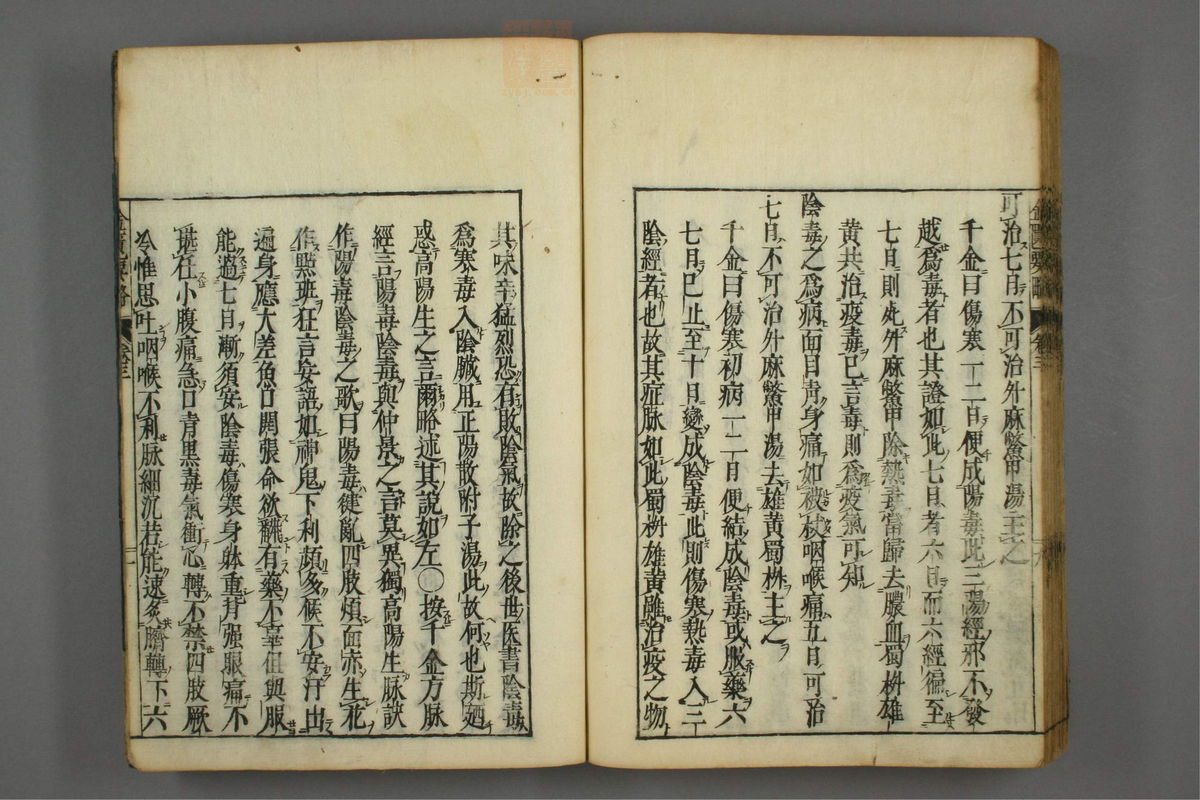 可治七日不可治升麻鱉甲湯主之
千金曰傷寒一二日便成陽毒此三陽經邪不發
越爲毒者也其證如此七日者六日而六經徧至
七日則死升麻鱉甲除熱毒當歸去膿血蜀椒雄
黃共治疫毒已言毒則爲疫氣可知
陰毒之爲病面目靑身痛如被杖咽喉痛五日可治
七日不可治升麻鱉甲湯去雄黃蜀椒主之
千金曰傷寒初病一二日便結成陰毒或服藥六
七日已上至十日變成陰毒此則傷寒熱毒入三
陰經者也故其症脉如此蜀椒雄黃雖治疫之物
其味辛猛烈恐有敗陰氣故除之後世医書陰毒
爲寒毒入陰臟用正陽散附子湯此故何也斯廼
惑高陽生之言爾略述其說如左〇按千金方脉
經言陽毒陰毒與仲景之言莫異獨高陽生脉訣
作陽毒陰毒之歌曰陽毒徤亂四肢煩面赤生花
作㸃班狂言妄語如神鬼下利頻多候不安汗出
遍身應大差魚口開張命欲飜有藥不辜但與服
能過七日漸須安陰毒傷寒身躰重背强眼痛不
堪任小腹痛急口青黑毒氣衝心轉不禁四肢厥
冷惟思吐咽喉不利脉細沉若能速灸臍轉下六
金匱要略
卷三